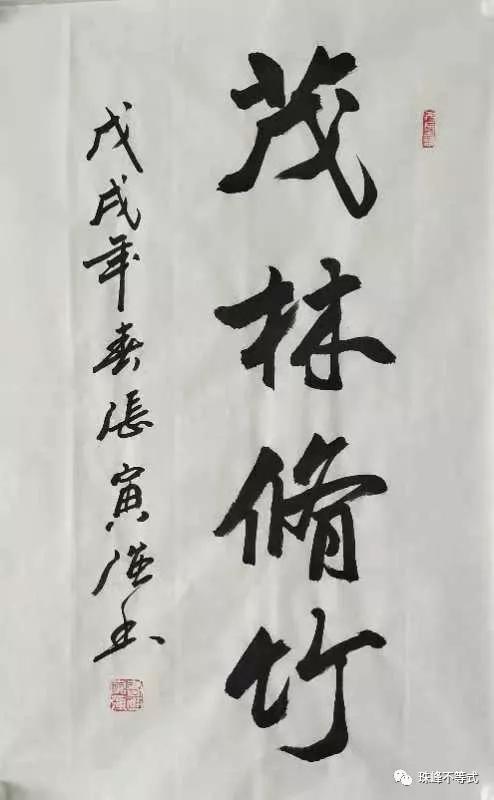 茂林脩竹
戊戌年春張寅书
珠峰不等式